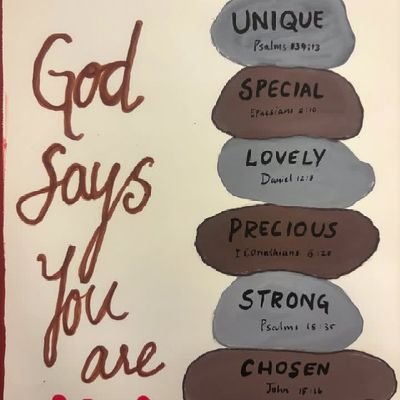 God
says
You
are
UNIQUE
Psalms 139:13
SPECIAL
Ephesians 2:10
LOVELY
Daniel 12:3
PRECIOUS
1 Corinthians 6:20
STRONG
Psalms 18:35
CHOSEN
John 15:16